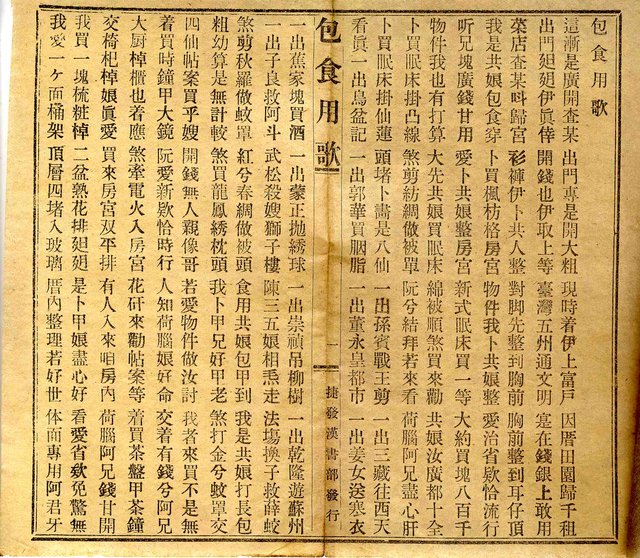 包食用歌
這漸是廣開查某　出門專是開大粗　現時着伊上富戶　因厝田園歸千租
出門廻廻伊眞倖　開錢也伊取上等　臺灣五州通文明　寔在錢銀上敢用
菜店查某叫歸宮　衫褲伊卜共人整　對脚先整到胸前　胸前整到耳仔頂
我是共娘包食穿　卜買楓枋格房宮　物件我卜共娘整　愛治省欵恰流行
听兄塊廣錢甘用　愛卜共娘整房宮　新式眠床買一等　大約買塊八百千
物件我也有打算　大先共娘買眠床　綿被順煞買來勸　共娘汝廣都十全
卜買眠床掛凸線　煞剪紡綢做被單　阮兮結拜若來看　荷腦阿兄盡心肝
卜買眠床掛仙蓮　頭堵卜畵是八仙　一出孫賓戰王剪　一出三藏往西天
看眞一出烏盆記　一出郭華買胭脂　一出董永皇都市　一出姜女送寒衣
包食用歌　一　捷發漢書部發行
一出蕉家塊買酒　一出蒙正抛綉球　一出崇禎吊柳樹　一出乾隆遊蘇州
一出子良救阿斗　武松殺嫂獅子樓　陳三五娘相𤆬走　法塲換子救薛蛟
煞剪秋羅做蚊罩　紅兮春綢做被頭　食用共娘包甲到　我是共娘打長包
粗幼算是無計較　煞買龍鳳綉枕頭　我卜甲兄好甲老　煞打金兮蚊罩交
四仙帖案買乎嫂　開錢無人親像哥　若愛物件做汝討　我者來買不是無
着買時鐘甲大鏡　阮愛新欵恰時行　人知荷腦娘好命　交着有錢兮阿兄
大厨棹櫃也着應　煞牽電火入房宮　花矸來勸帖案等　着買茶盤甲茶鐘
交椅杞棹娘眞愛　買來房宮双平排　有人入來咱房內　荷腦阿兄錢甘開
我買一塊梳粧棹　二盆熟花排廻廻　是卜甲娘盡心好　看愛省欵免驚無
我愛一ケ面桶架　頂層四堵入玻璃　厝內整理若好世　体面專用阿君牙